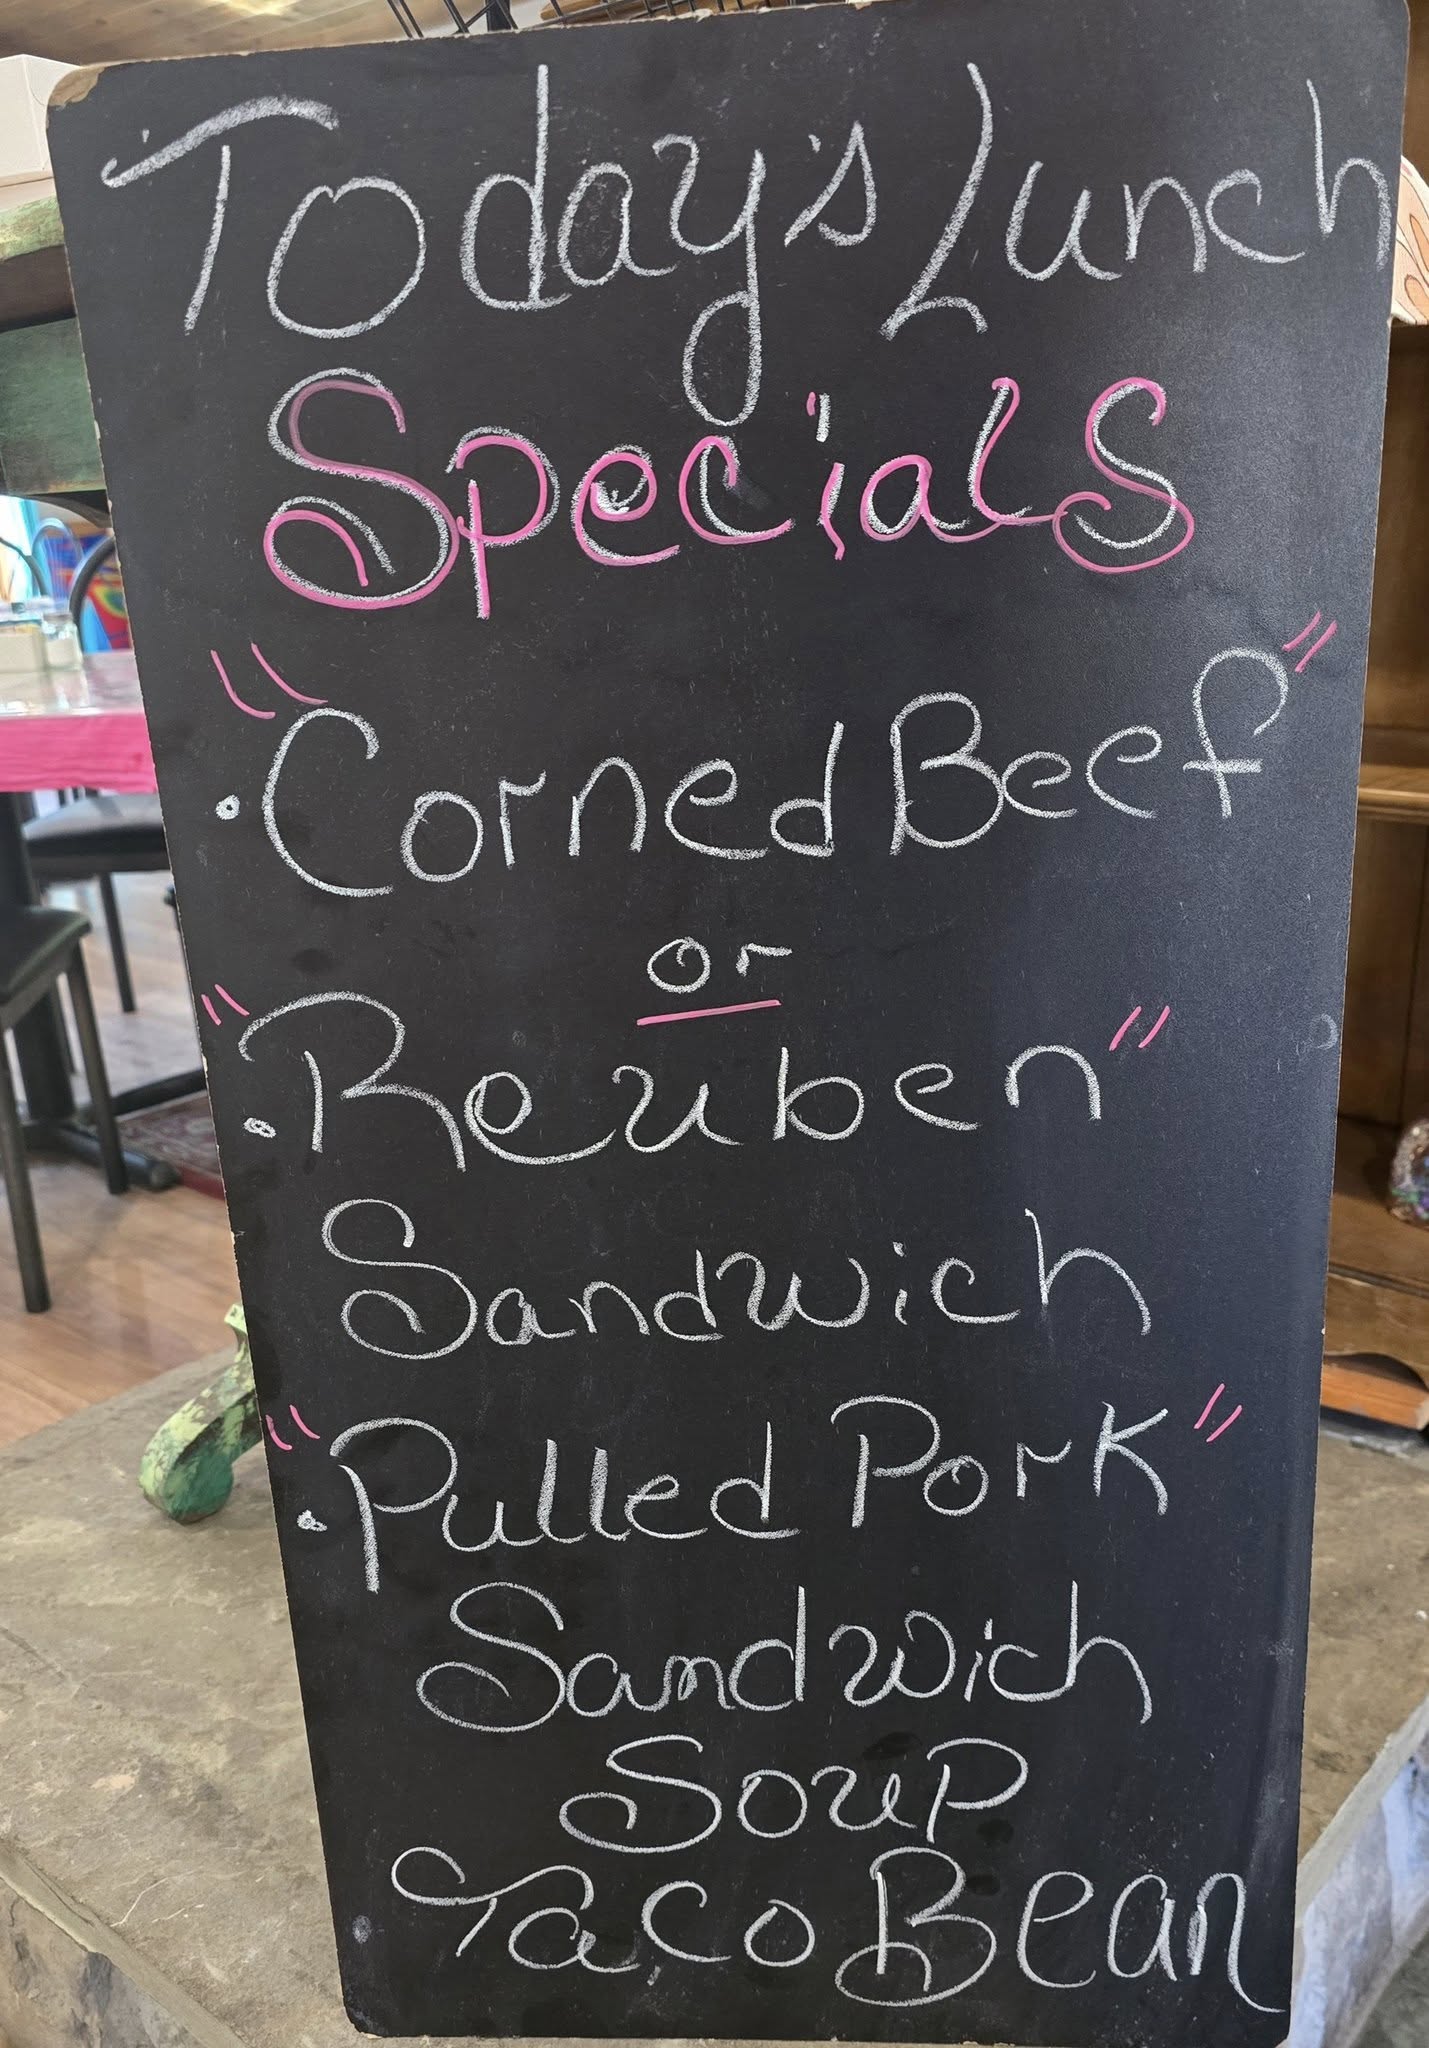 Today's Lunch
Specials
"
• Corned Beef"
or
"
• Reuben"
Sandwich
"
• Pulled Pork"
Sandwich
Soup
Taco Bean